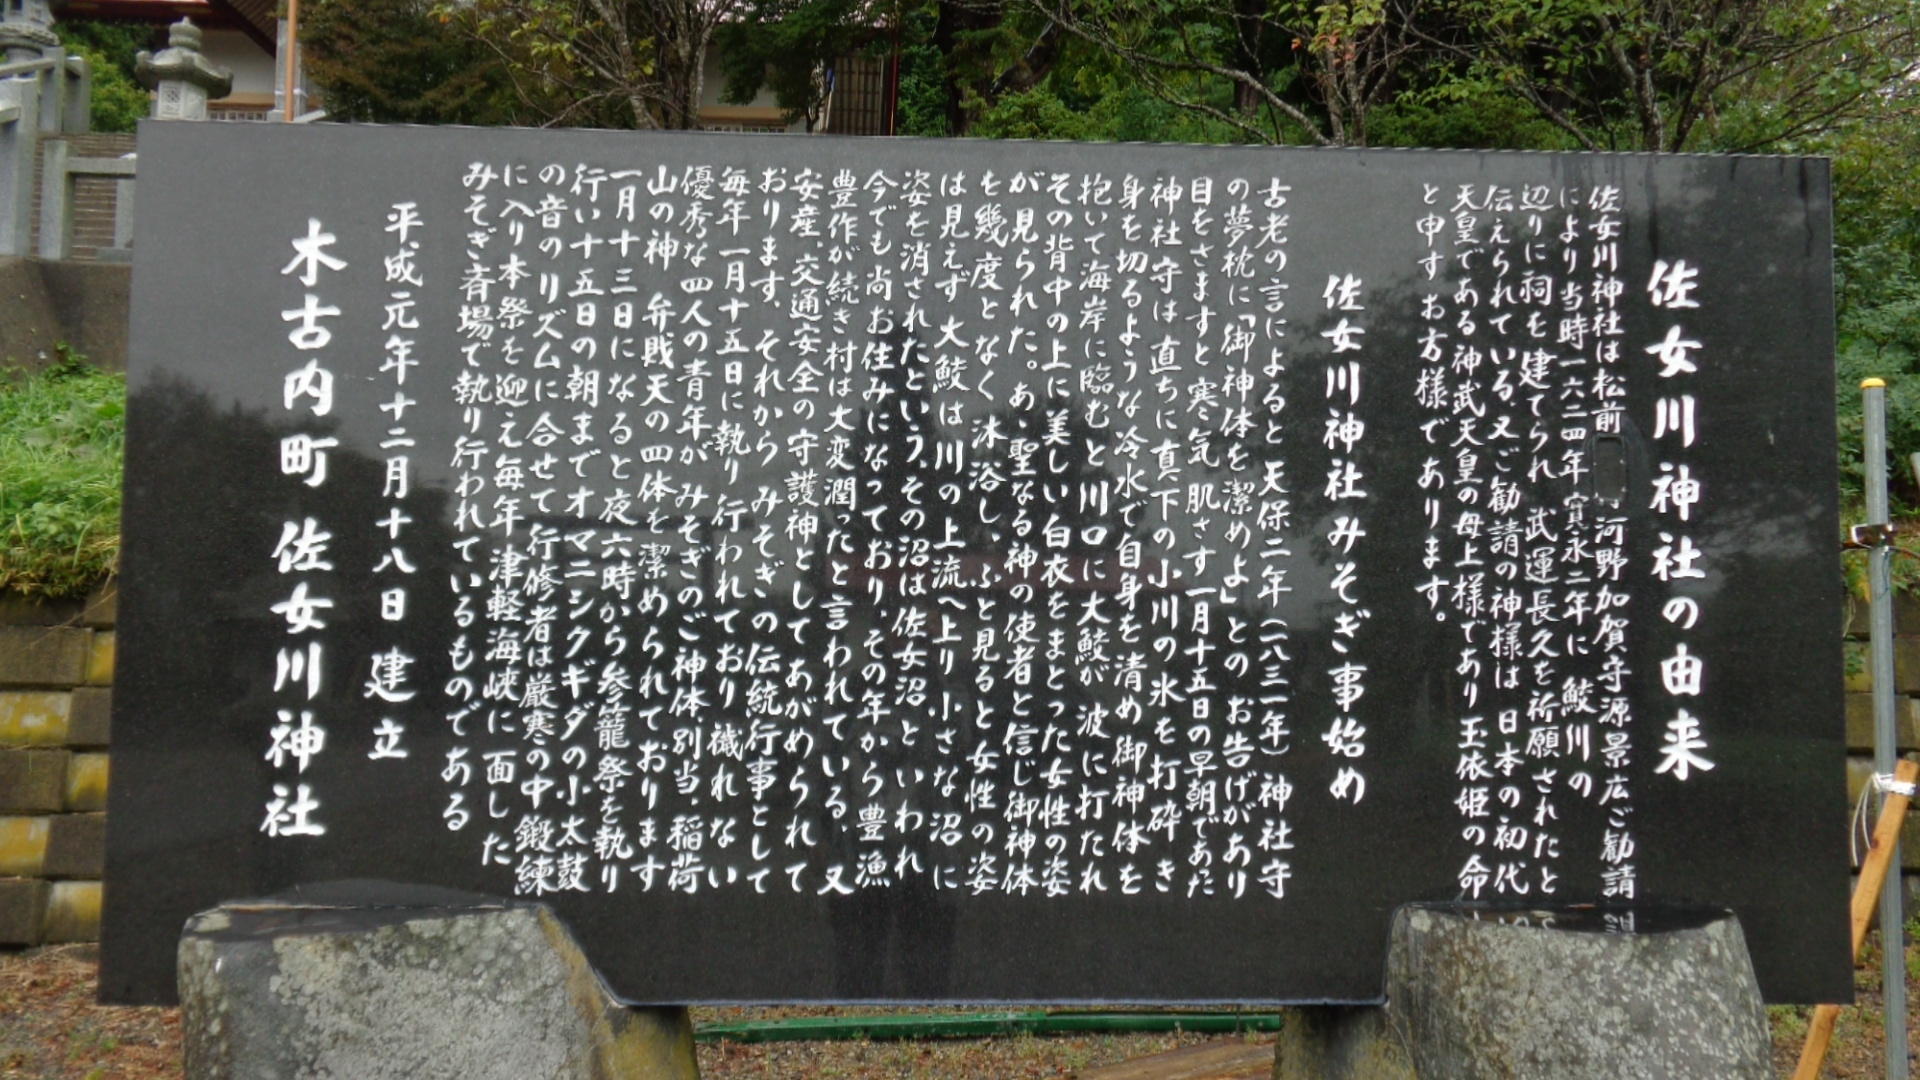 佐女川神社の由来
佐女川神社は松前 河野加賀守源景広ご勧請
により当時一六二四年寛永二年に 鮫川の
辺りに祠を建てられ 武運長久を祈願されたと
伝えられている、又ご勧請の神様は 日本の初代
天皇である神武天皇の母上様であり玉依姫の命
と申すお方様であります。
佐女川神社みそぎ事始め
古老の言によると天保二年(一八三一年)神社守
の夢枕に「御神体を潔めよ」とのお告げがあり
目をさますと寒気肌さす一月十五日の早朝であった
神社守は直ちに真下の小川の氷を打砕き
身を切るような冷水で自身を清め御神体を
抱いて海岸に臨むと川口に大鮫が波に打たれ
その背中の上に美しい白衣をまとった女性の姿
が見られた。あゝ聖なる神の使者と信じ御神体
を幾度となく沐浴し、ふと見ると女性の姿
は見えず大鮫は川の上流へ上り小さな沼に
姿を消されたという、その沼は佐女沼といわれ
今でも尚お住みになっており、その年から豊漁
豊作が続き村は大変潤ったと言われている、又
安産、交通安全の守護神としてあがめられて
おります、それからみそぎの伝統行事として
毎年一月十五日に執り行われており穢れない
優秀な四人の青年がみそぎのご神体、別当、稲荷
山の神 弁財天の四体を潔められております
一月十三日になると夜六時から参籠祭を執り
行い十五日の朝までオマニシクギダの小太鼓
の音のリズムに合せて行修者は厳寒の中鍛練
に入り本祭を迎え毎年津軽海峡に面した
みそぎ斉場で執り行われているものである
平成元年十二月十八日 建立
木古内町 佐女川神社